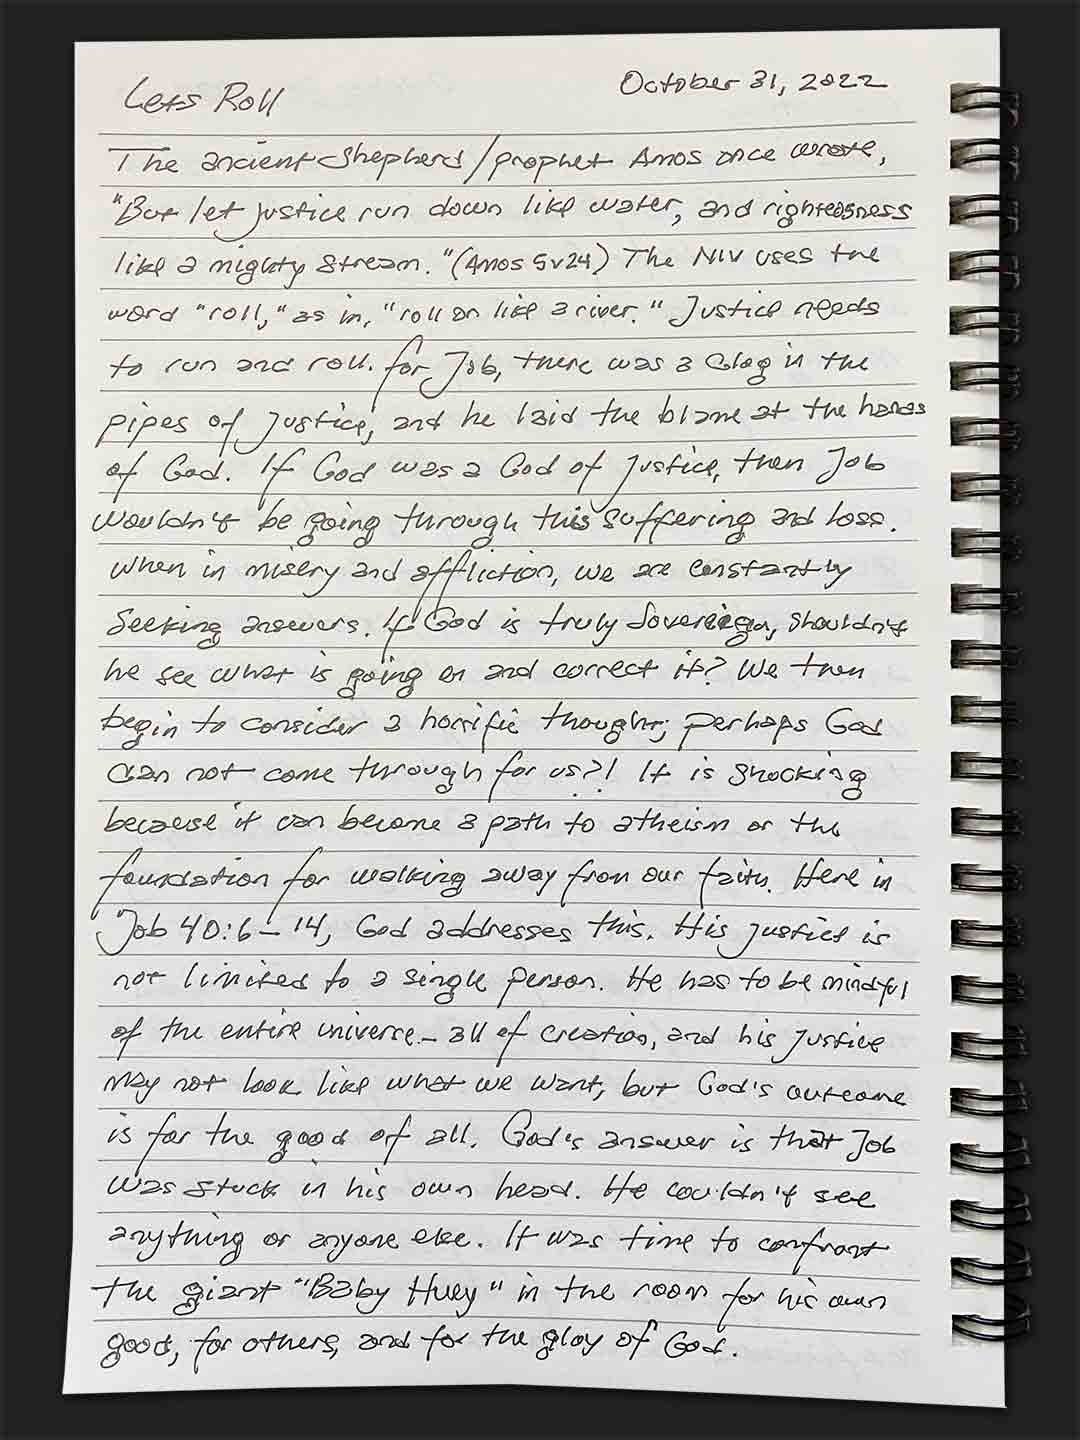 Lets Roll
October 31, 2022
The ancient Shepherd/prophet Amos once wrote,
"But let justice run down like water, and righteosness
like a mighty stream." (Amos 5v24) The NIV uses the
word "roll," as in, "roll on like a river." Justice needs
to run and roll. for Job, there was a clog in the
pipes of justice, and he laid the blame at the hands
of God. If God was a God of justice, then Job
wouldn't be going through this suffering and loss.
When in misery and affliction, we are constantly
seeking answers. If God is truly Sovereign, shouldn't
he see what is going on and correct it? We then
begin to consider a horrific thought; perhaps God
can not come through for us?! It is shocking
because it can become a path to atheism or the
foundation for walking away from our faith. Here in
Job 40:6-14, God addresses this. His justice is
not limited to a single person. He has to be mindful
of the entire universe - all of creation, and his justice
may not look like what we want, but God's outcome
is for the good of all. God's answer is that Job
was stuck in his own head. He couldn't see
anything or anyone else. It was time to confront
the giant "Baby Huey" in the room for his own
good, for others, and for the gloy of God.